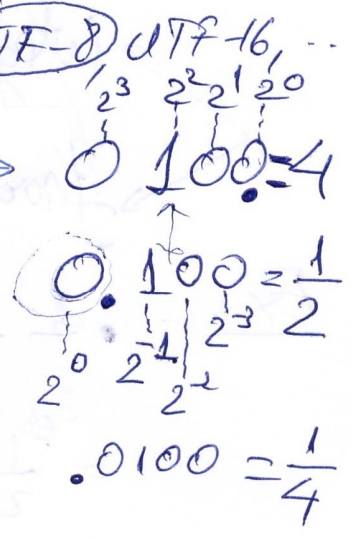 TF-8, UTF-16, ..
2³ 2² 2¹ 2⁰
0 100. = 4
0.100 = 1/2
2⁰ 2⁻¹ 2⁻² 2⁻³
.0100 = 1/4